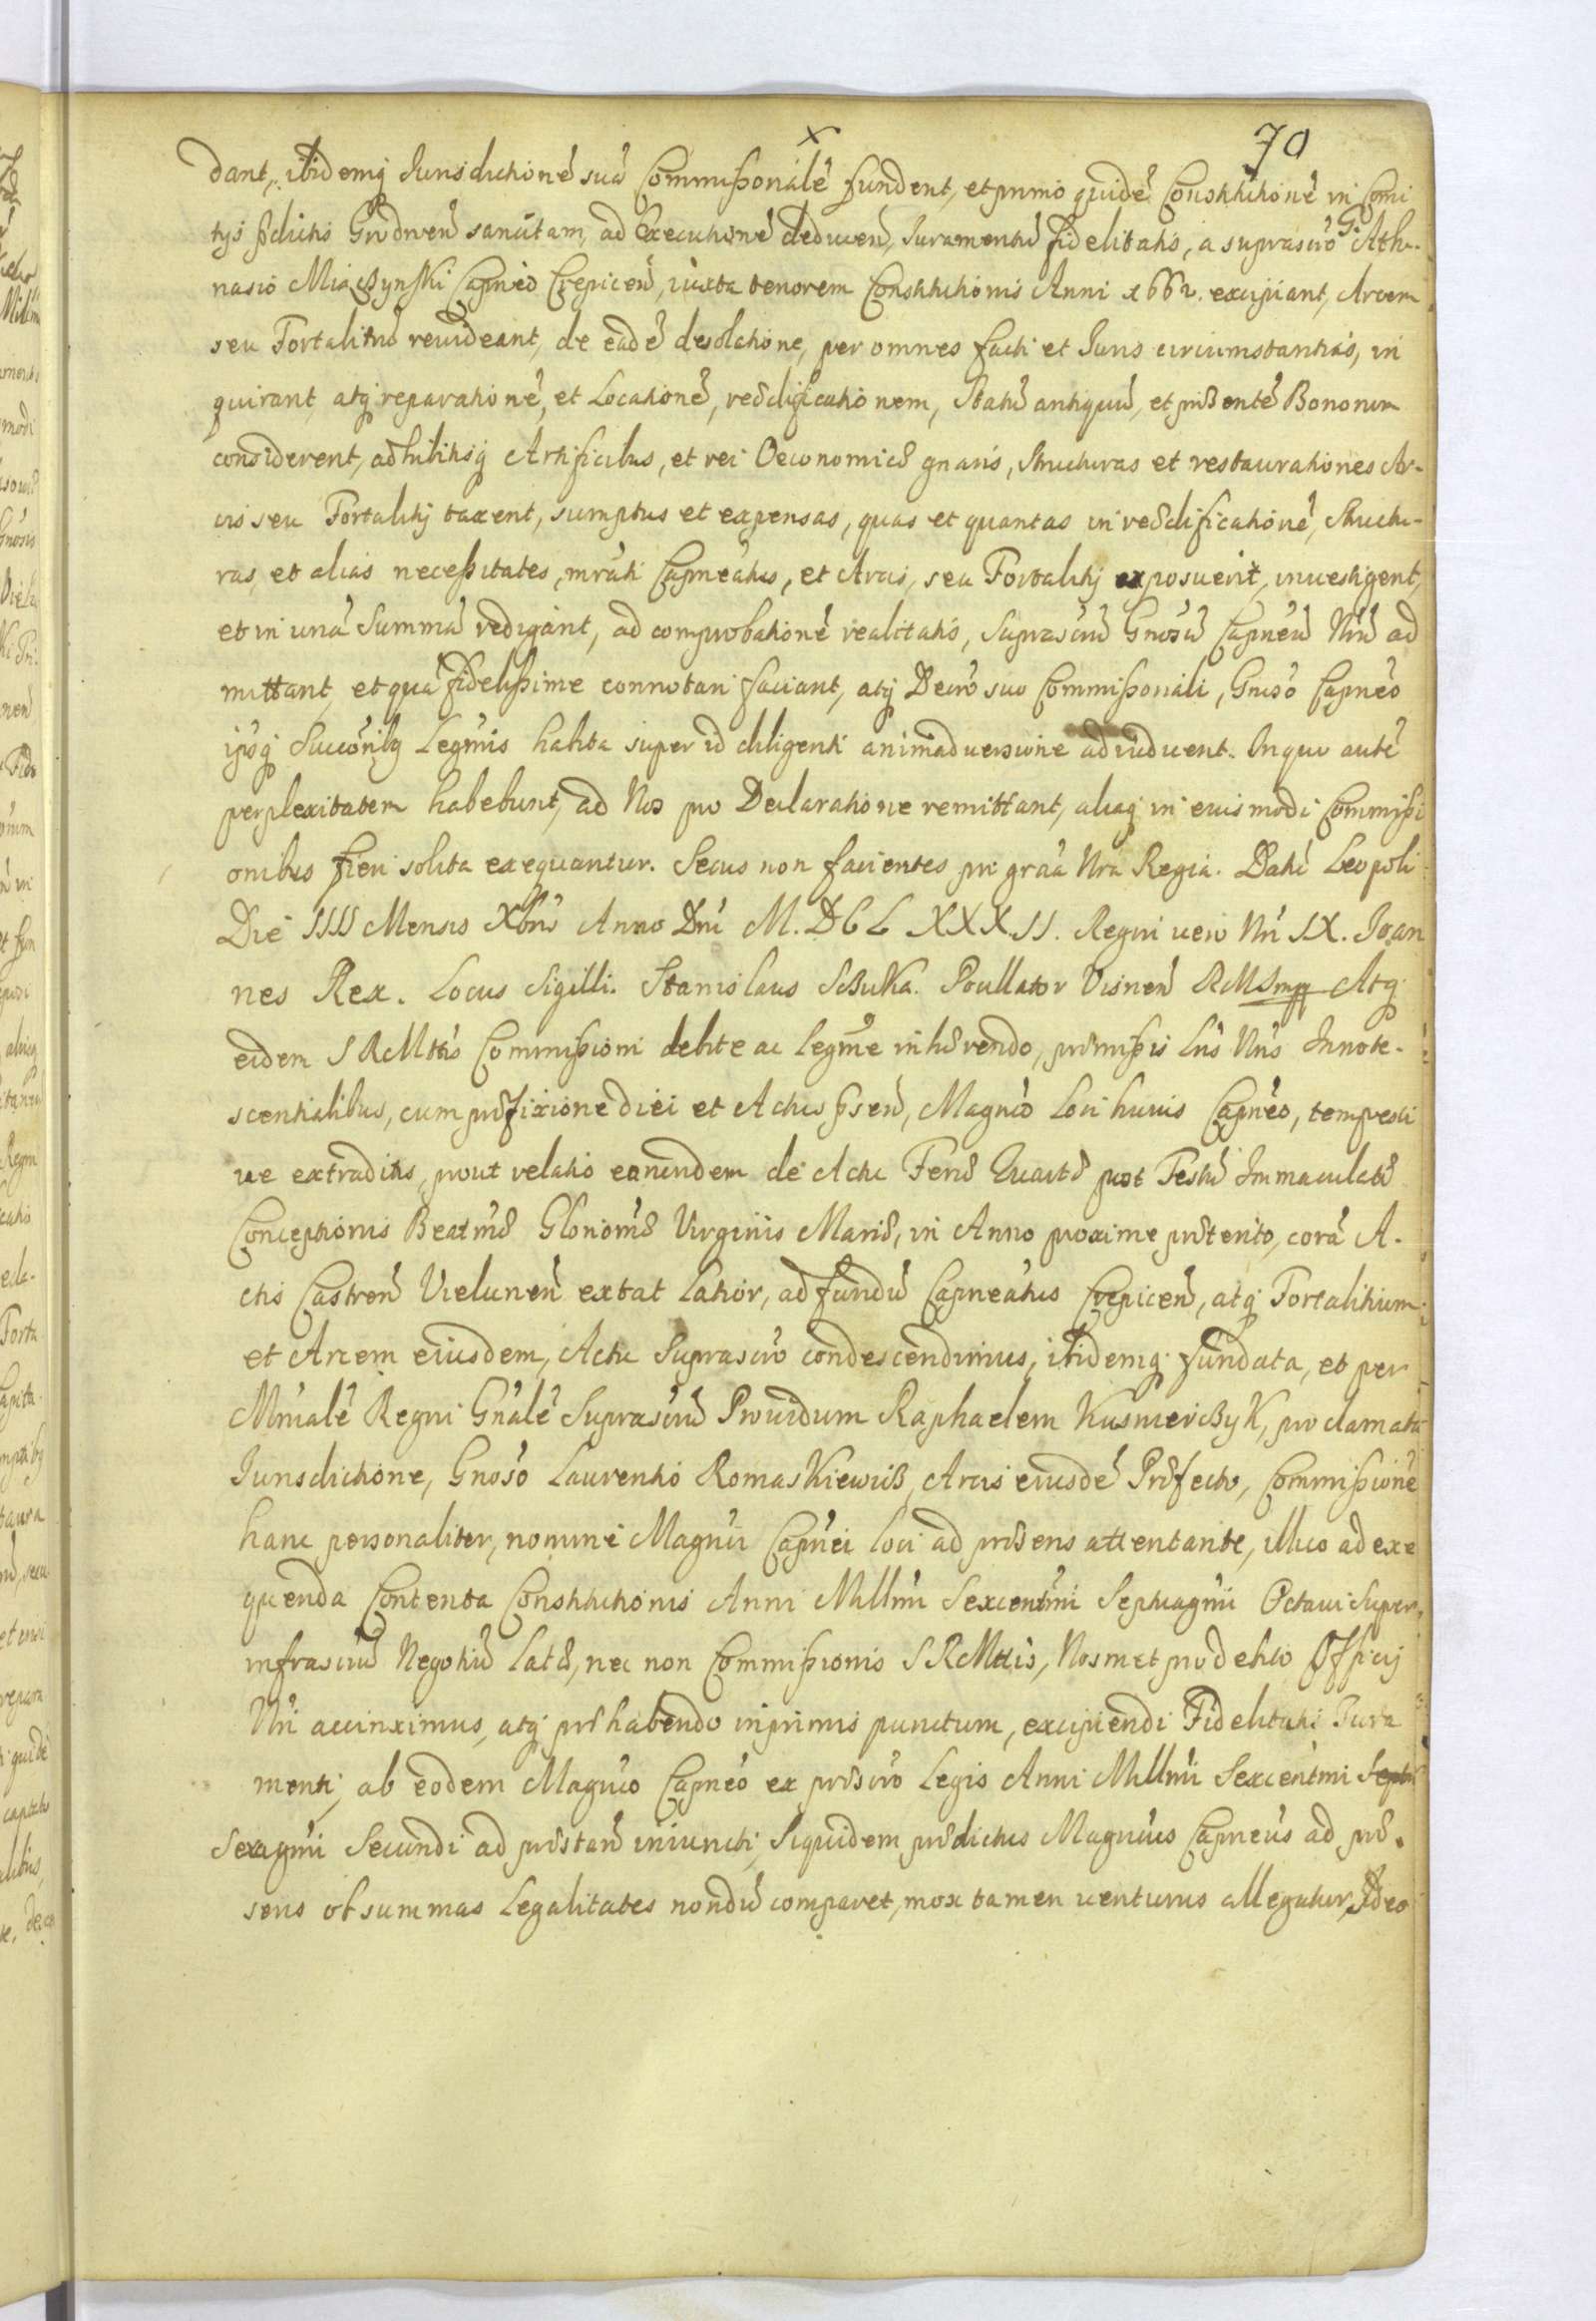 x
70
dant, ibidemq Jurisdictionē suā Commissorialē fundent, et primo quidē Constitutionē in Comi
tijs pdictis Grodnen̄ sancitam, ad Executionē deducen̄, Juramentū fidelitatis, a suprascr̄o G. Atha-
nasio Miączynski Capn̄eo Crepicen̄, iuxta tenorem Constitutionis Anni 1662. excipiant, Arcem
seu Fortalitiū reuideant, de eadē desolatione, per omnes facti et Juris circumstantias, in
quirant, atq reparationē, et Locationē, reædificationem, Statū antiquū, et præsentē Bonorum
considerent, adhibitisq Artificibus, et rei Oeconomicæ gnaris, structuras et restaurationes Ar-
cis seu Fortalitij taxent, sumptus et expensas, quas et quantas in reædificationē, Structu-
ras, et alias necessitates, mr̄ati Capn̄eatus, et Arcis, seu Fortalitij exposuerit, inuestigent,
et in unā Summā redigant, ad comprobationē realitatis, Suprascr̄ū Gn̄osū Capn̄eū Nr̄ū ad
mittant, et quā fidelissime connotari faciant, atq Decr̄o suo Commissoriali, Gn̄oso Capn̄eo
ipsiq Succ̄oribq Legm̄is habita super id diligenti animaduersione adiudicent. In quo autē
perplexitatem habebunt, ad Nos pro Declaratione remittant, aliaq in eiusmodi Commissi
onibus fieri solita exequantur. Secus non facientes pr̄i gr̄aa Nr̄a Regia. Datū Leopoli
Die IIII Mensis Xbris Anno Dn̄i M.DCLXXXII. Regni uero Nr̄i IX. Joan
nes Rex. Locus Sigilli. Stanislaus Sczuka. Pocillator Visnen̄ RMSmp Atq
eidem SRMttis Commissioni debite ac legm̄e inhærendo, præmissis Lr̄is Nr̄is Innote-
scentialibus, cum præfixione diei et Actus pr̄sen̄, Magn̄co Loci huius Capn̄eo, tempesti
ue extraditis, prout relatio earundem de Actu Feriæ Quartæ post Festū Immaculatæ
Conceptionis Beatm̄æ Glorioss̄æ Virginis Mariæ, in Anno proxime præterito, corā A-
ctis Castren̄ Vielunen̄ extat Latior, ad fundū Capn̄eatus Crepicen̄, atq Fortalitium
et Arcem eiusdem, Actu Suprascr̄o condescendimus, ibidemq fundata, et per
Mn̄ialē Regni Gn̄alē Suprascr̄ū Prouidum Raphaelem Kusmierczyk, proclamata
Jurisdictione, Gn̄oso Laurentio Romaskiewicz, Arcis eiusdē Præfecto, Commissionē
hanc personaliter, nomine Magn̄ci Capn̄ei loci ad præsens attentante, illico ad exe
quenda Contenta Constitutionis Anni Millm̄i Sexcentm̄i Septuagm̄i Octaui Super
infrascr̄ū Negotiū Latæ, nec non Commissionis SRMttis, Nosmet pro debito Officij
Nr̄i accinximus, atq præ habendo inprimis punctum, excipiendi Fidelitati Jura
menti, ab eodem Magn̄co Capn̄eo ex præscr̄o Legis Anni Millm̄i Sexcentm̄i Septm
Sexagm̄i Secundi ad præstan̄ iniuncti, Siquidem prædictus Magn̄cus Capn̄eus ad præ-
sens ob summas Legalitates nondū comparet, mox tamen uenturus allegatur, Ideo